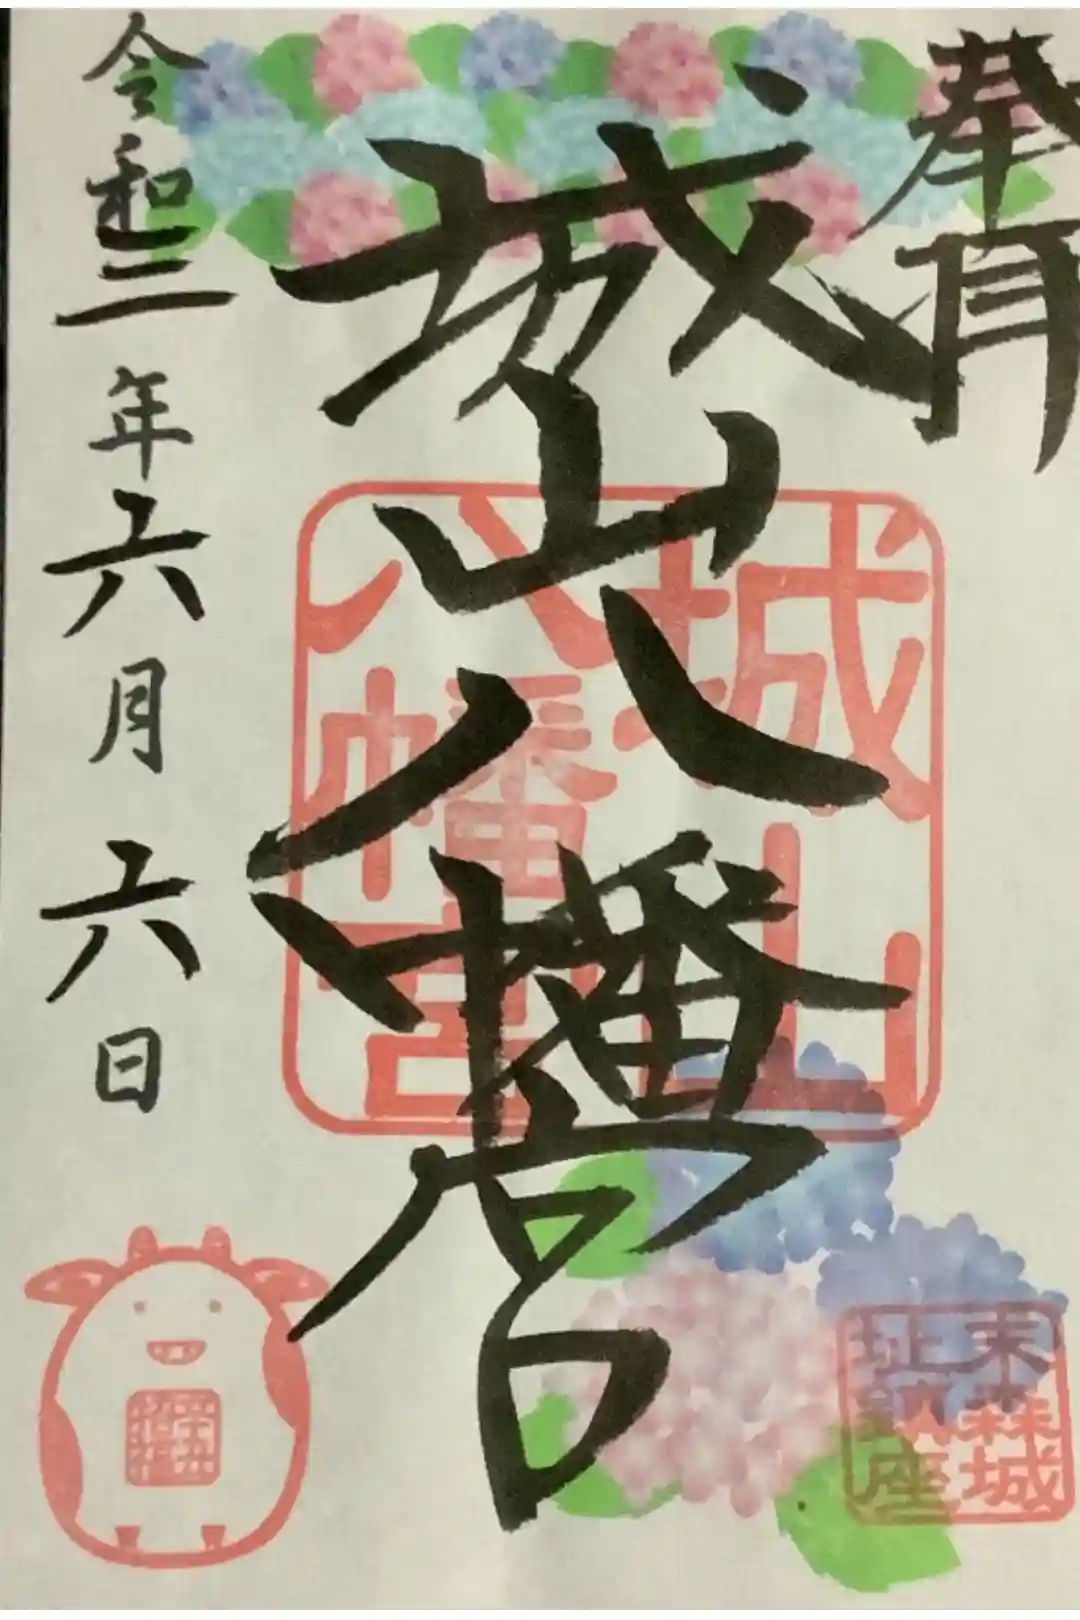 奉拝
城山八幡宮
令和三年六月六日
城山
八幡宮
末森城
址鎮座
辛丑
招福